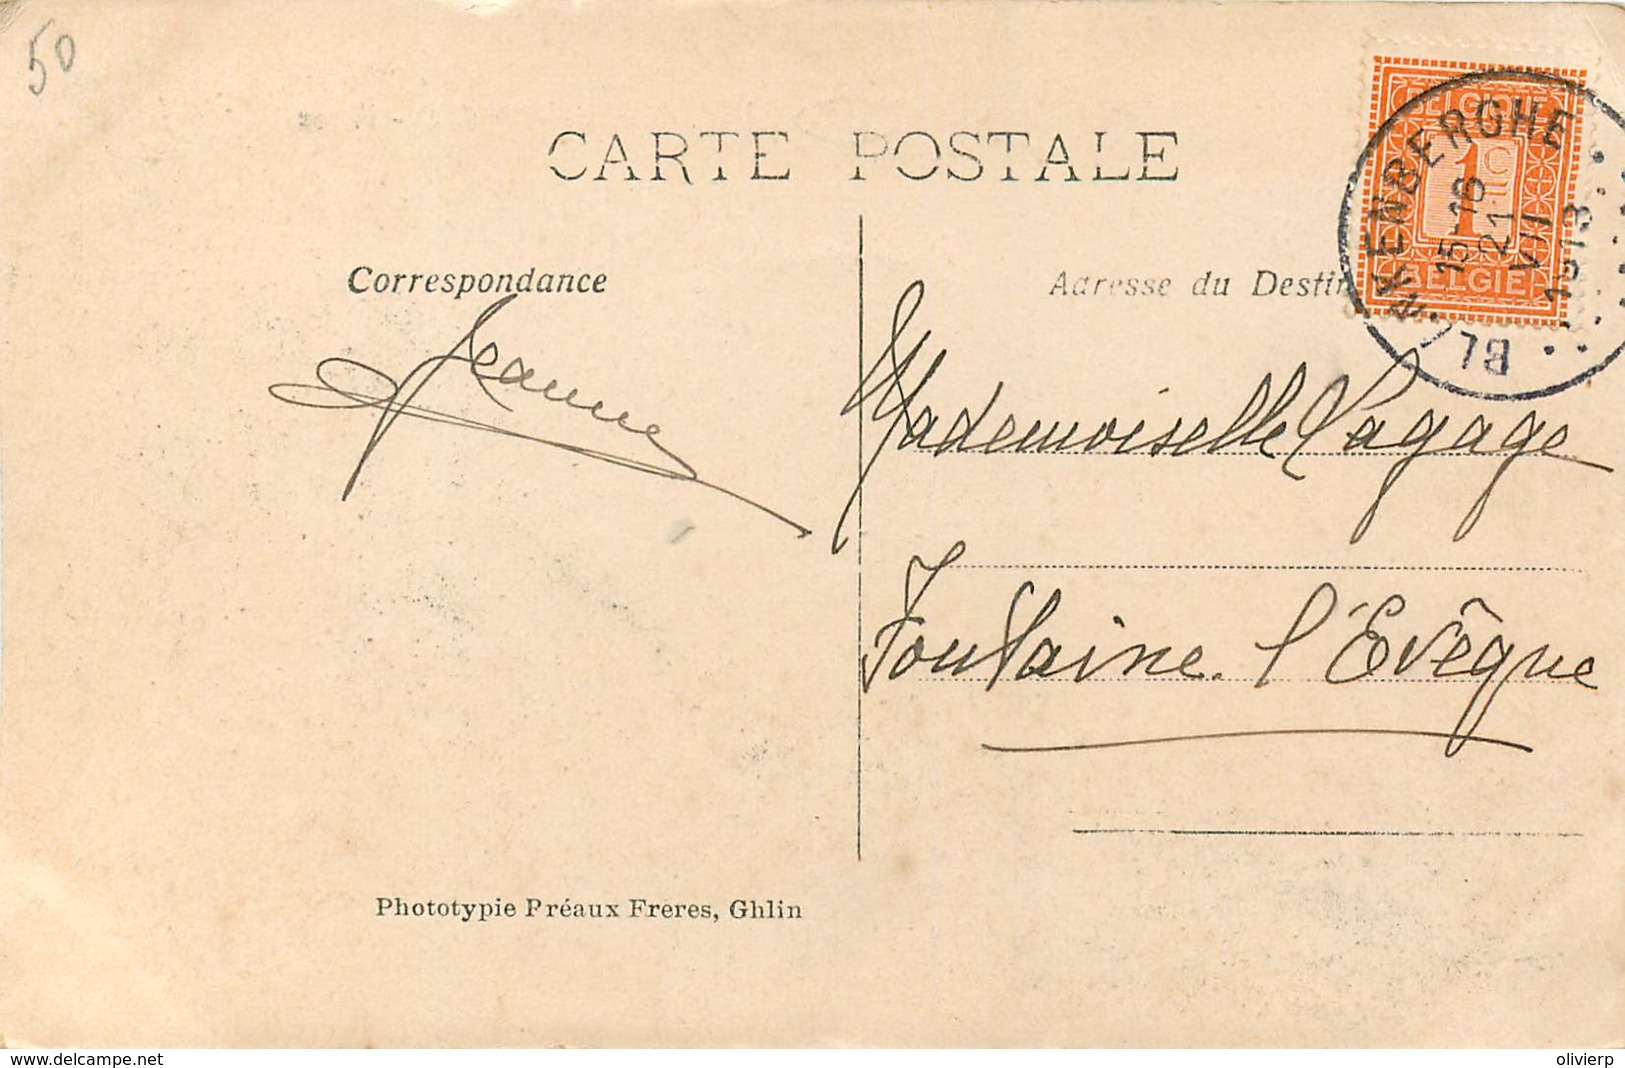 50
CARTE POSTALE
BELGIQUE
1 C
BELGIE
BLANKENBERGHE
15-16
21
VII
1913
Correspondance
Adresse du Destin
Jeanne
Mademoiselle Lagage
Fontaine. l'Evêque
Phototypie Préaux Freres, Ghlin
www.delcampe.net
olivierp